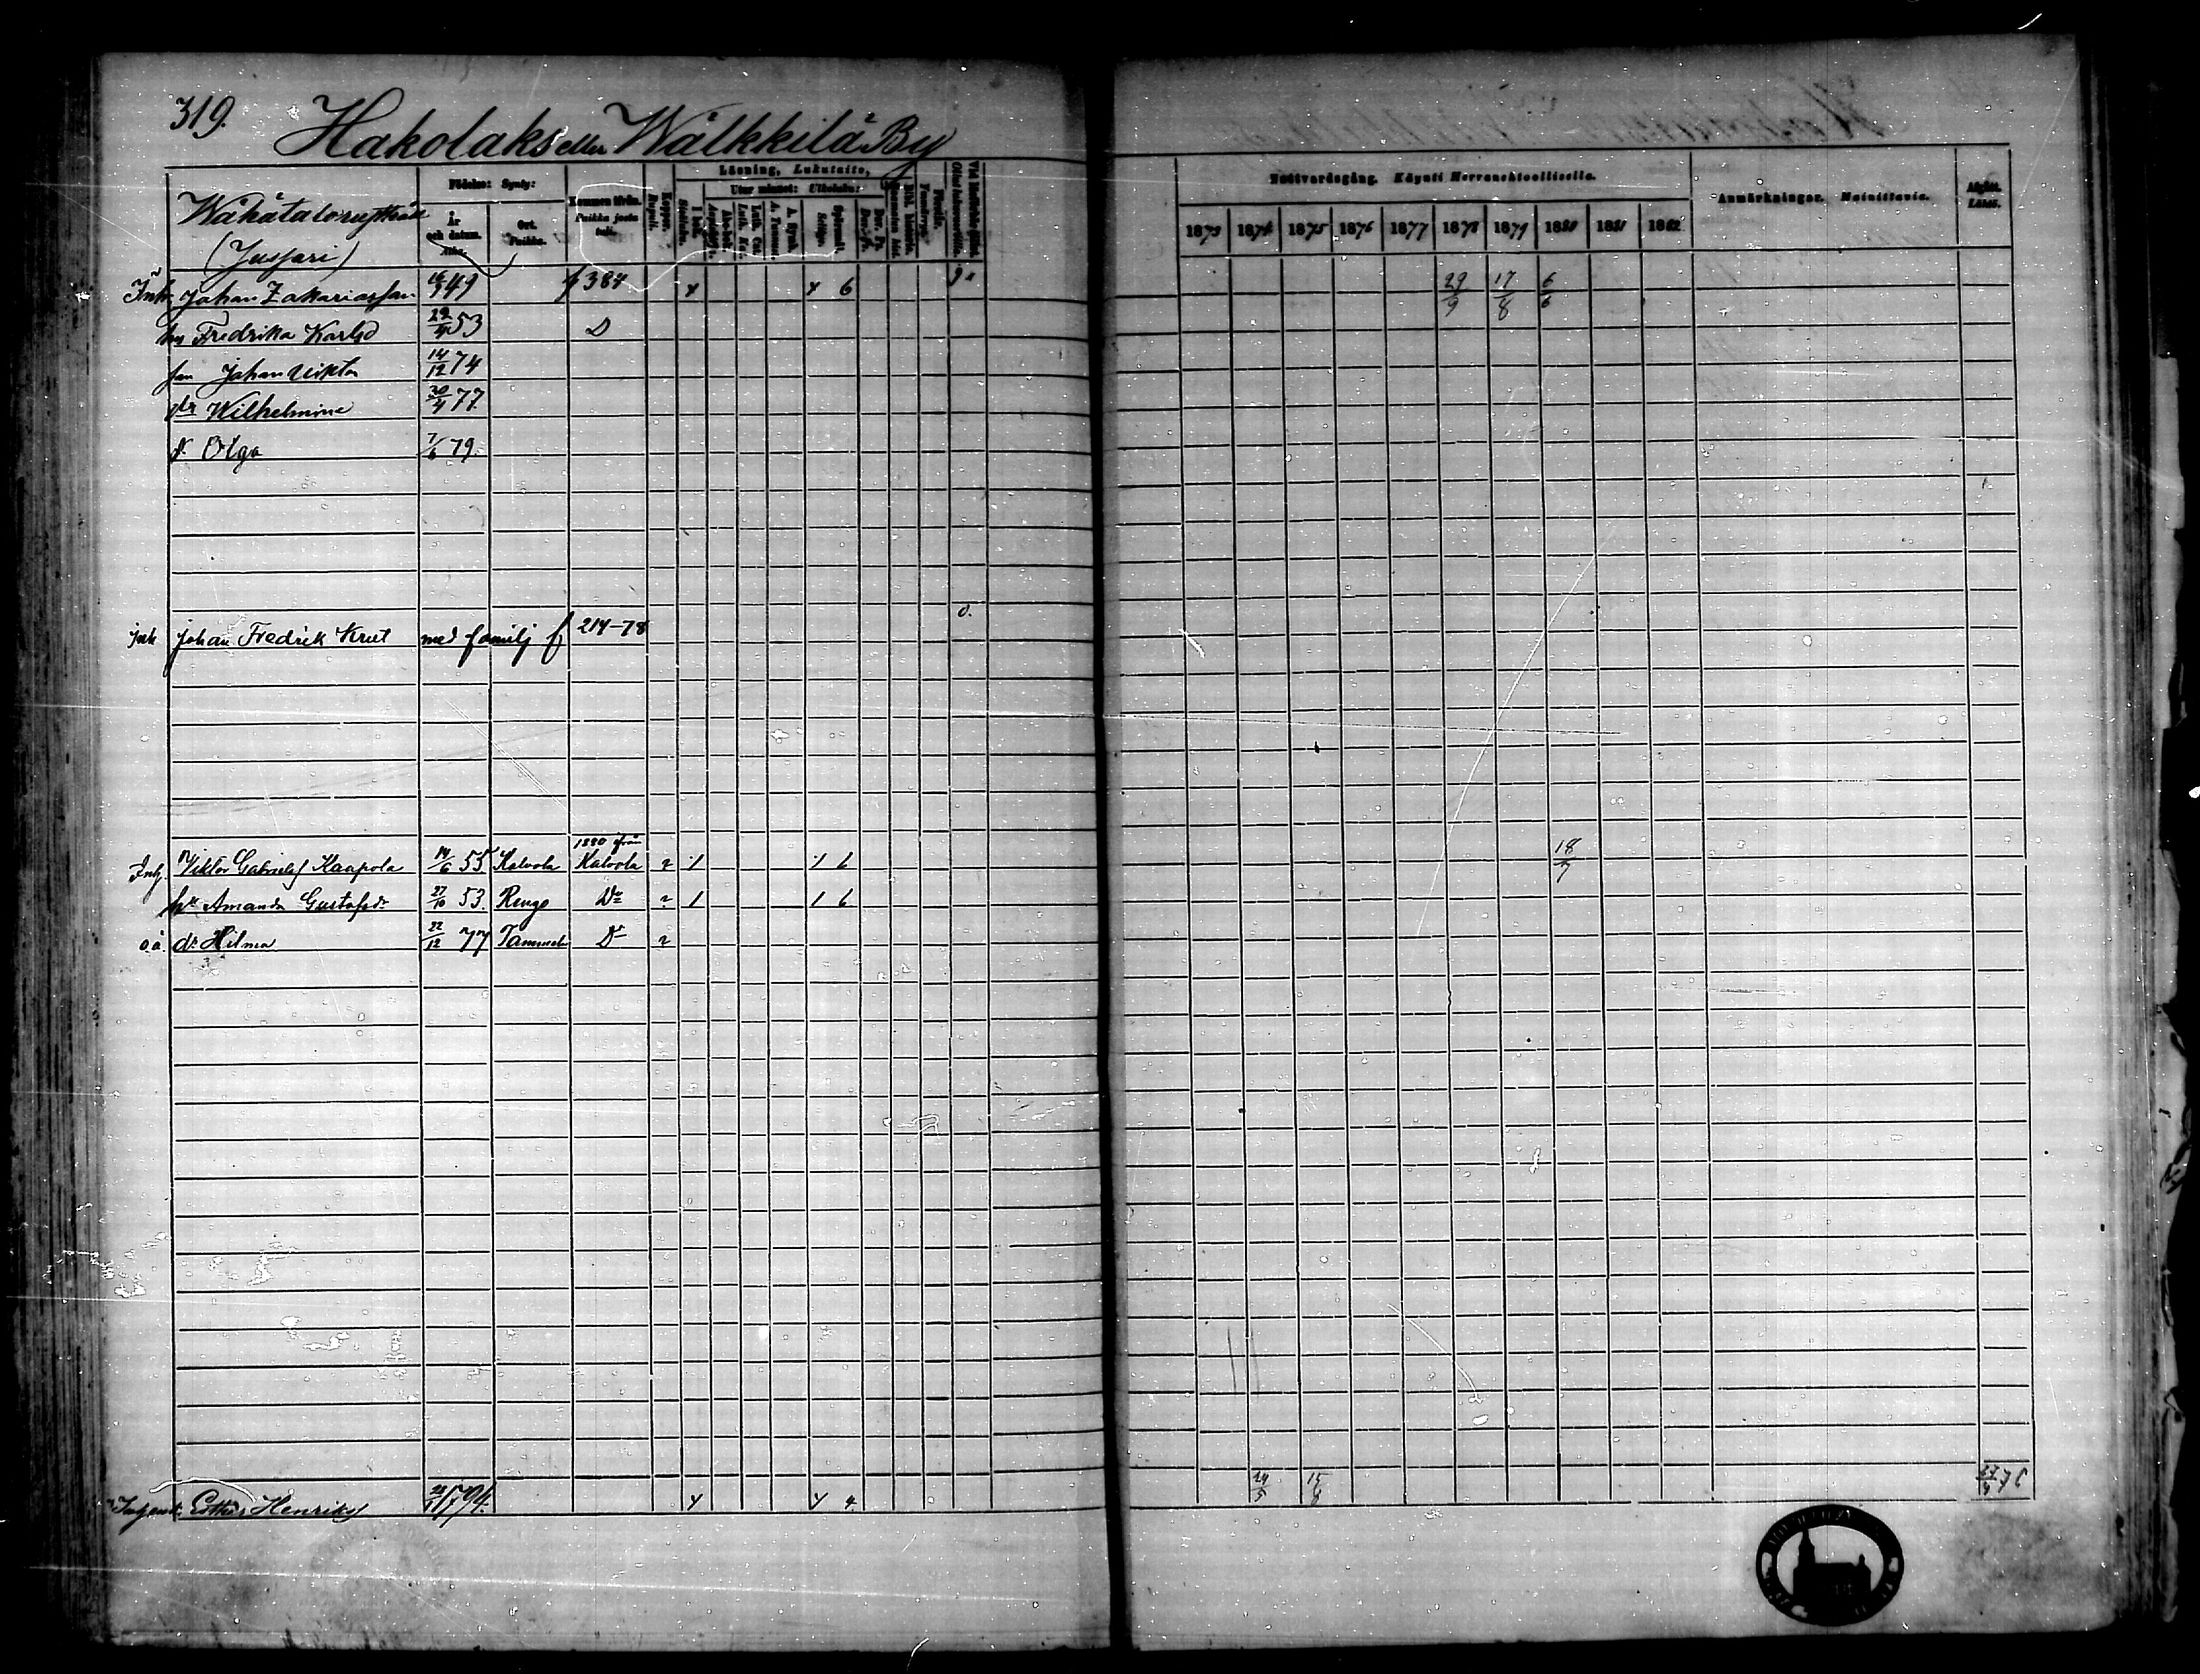 319.
Hakolaks eller Wälkkilä By
Födelse: Synty:
Läsning, Lukutaito,
Utur minnet: Ulkoluku:
Nattvardsgång. Käynti Herranehtoollisella.
Anmärkningar. Muistutuksia.
År och datum. Aika.
Ort. Paikka.
Kommen ifrån. Paikka josta tuli.
Koppor. Rupuli.
I bok. Sisäluku.
1873 1874 1875 1876 1877 1878 1879 1880 1881 1882
(Jussari)
Inh. Johan Zakariasson 16/9 49 f 384 4 4 6 29/9 17/8 6/6
hu Fredrika Karlsd 29/4 53 D
son Johan Viktor 14/12 74
dr Wilhelmina 20/4 77
d. Olga 7/6 79
Inh Johan Fredrik Krut med familj f 214-78 0.
1880 från
Inh. Viktor Gabrielss Kaapola 14/6 55 Kalvola Kalvola 2 1 1 6 18/7
hu Amanda Gustafsdr 27/10 53. Rengo Do 2 1 1 6
o.ä. dr Hilma 22/12 77 Tammela Do 2
Henriks 1794. 4 4 4 24/5 15/8 76